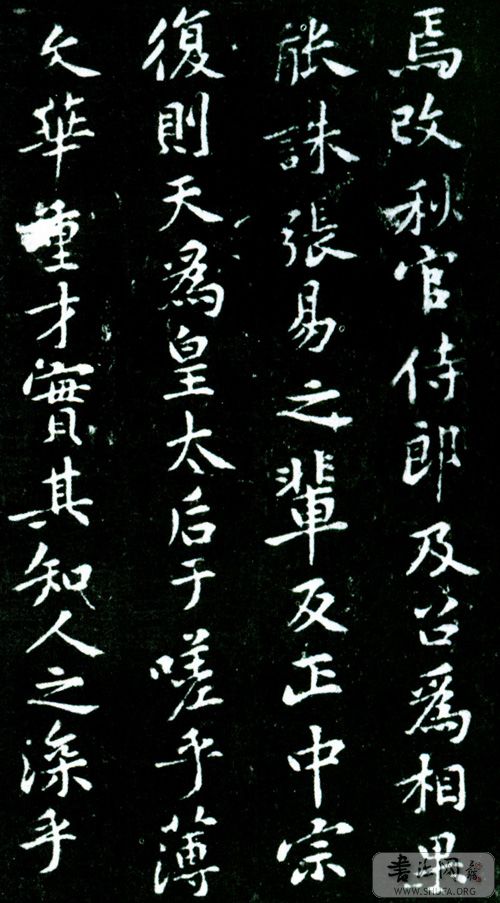 焉改秋官侍郎及召爲相果
能誅張易之輩反正中宗
復則天爲皇太后于嗟乎薄
文華重才實其知人之深乎
書法网
WWW.SHUFA.ORG